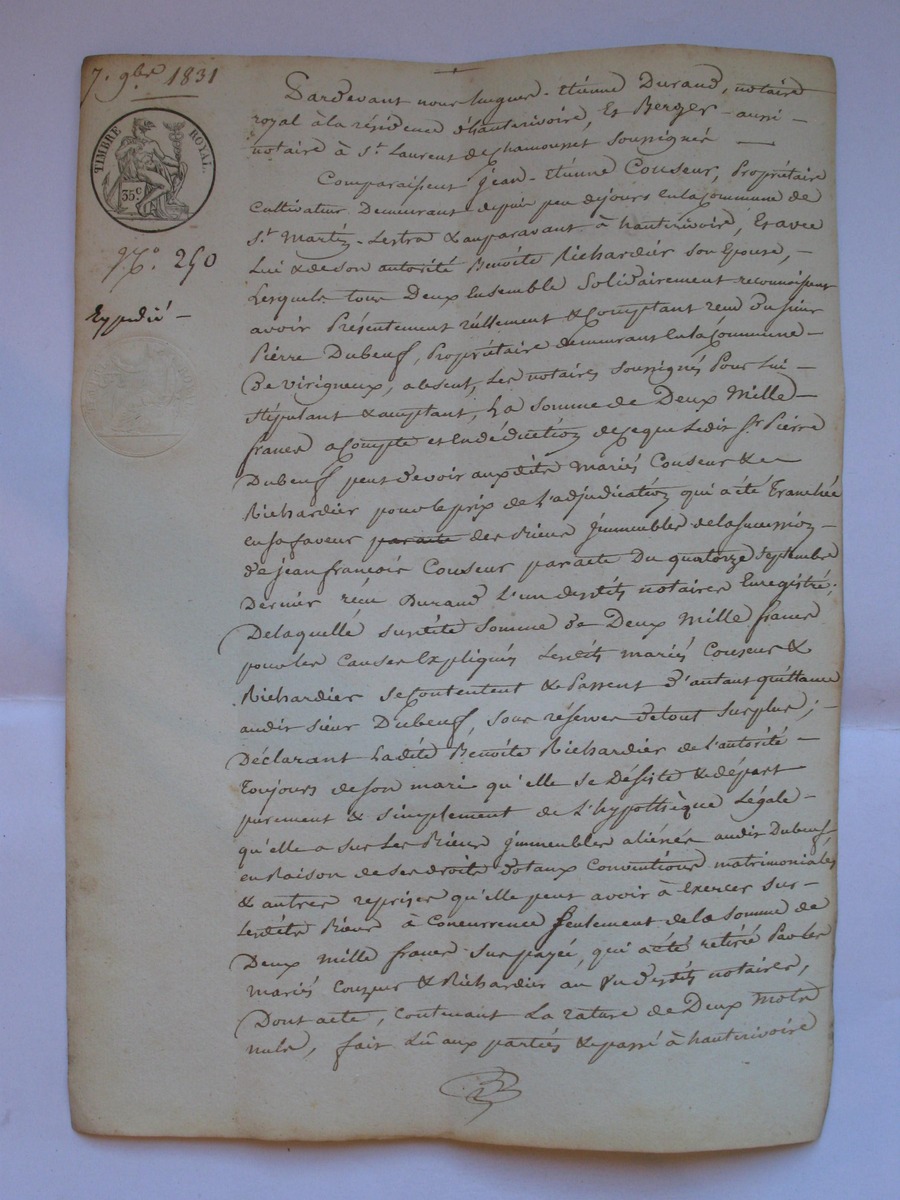 7. 9bre 1831
TIMBRE ROYAL.
35 C
N.° 250
Expédié —
Pardevant nous hugues-Etiénne Durand, notaire
royal à la résidence d'hauterivoire, Et Berger - aussi -
notaire à St. Laurent de Chamousset soussignés —
Comparaissent jean-Etiénne Couseur, Propriétaire
Cultivateur Demeurant depuis peu de jours en la Commune de
St. Martin-Lestra & auparavant à hauterivoire, Et avec
Lui & de son autorité Benoite Richardier son Epouse, -
Lesquels tous Deux Ensemble Solidairement reconnaissent
avoir Présentement réellement & Comptant reçu du sieur
Pierre Dubeuf, Propriétaire demeurant en la Commune -
De virigneux, absent, Les notaires soussignés Pour Lui -
stipulant & acceptant, La somme de Deux Mille -
francs a Compte et En déduction de ce que Ledit Sr. Pierre
Dubeuf peut devoir auxdits mariés Couseur & -
Richardier pour le prix de L'adjudication qui a été Tranchée
en sa faveur par acte des Biens jmmeubles de la succession -
de jean françois Couseur par acte Du quatorze Septembre
Dernier réçu Durand L'un desdits notaires Enregistré;
De laquelle susdite somme de Deux mille francs
pour les Causes Expliquées Lesdits mariés Couseur &
Richardier se Contentent & Passent d'autant quittance
audit sieur Dubeuf, sous reserves de tout surplus; -
Déclarant Ladite Benoite Richardier de L'autorité -
Toujours de son mari qu'elle se Désiste & départ
purement & simplement de L'hypothèque Légale -
qu'elle a sur Les Biens jmmeubles aliénés audit Dubeuf,
en Raison de ses droits dotaux Conventions matrimoniales
& autres reprises qu'elle peut avoir à Exercer sur -
Lesdits Biens à Concurrence seulement de la somme de
Deux mille francs sus payée, qui a été retirée Par les
mariés Couseur & Richardier au vu desdits notaires,
Dont acte, Contenant La rature de Deux mots
nuls, fait Lû aux parties & passé à hauterivoire